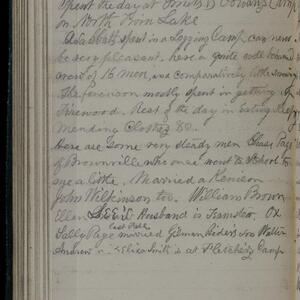 spent the day at Smith & Cowans Camp
on North Twin Lake
A Sabbath spent in a Logging Camp, can never
be very pleasant. here a quite well behaved
crew of 16 men, and comparatively little swearing
The forenoon mostly spent in getting
Firewood. Rest of the day in Eating
Mending Clothes &c.
here are some very steady men Chase Page
of Brownville who once went to School to
me a little. Married a Kenison
John Wilkinson too. William Brown
Ellen Husband is Teamster, Ox
Sally Page married Gilman Riders son Walter
Andrew Smith is at Fletchers Camp